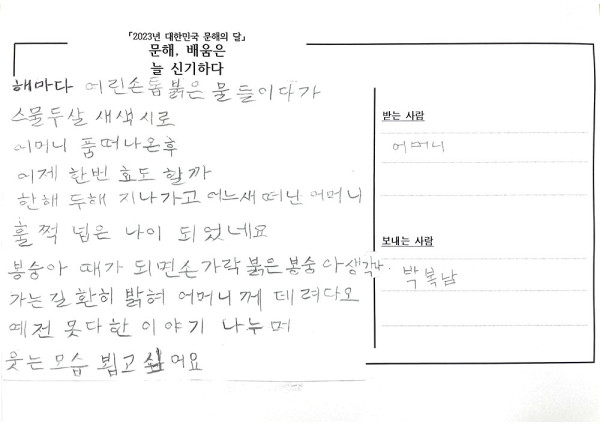 「2023년 대한민국 문해의 달」
문해, 배움은
늘 신기하다
해마다 어린손톱붉은 물 들이다가
스물두살 새색시로
어머니 품떠나온후
어제 한번 효도 할까
한해 두해 지나가고 어느새 떠난 어머니
훌쩍 넘은 나이 되었네요
봉숭아 때가 되면손가락 붉은봉숭아생각나.
가는길 환히 밝혀 어머니께 데려다오
예전 못다한 이야기 나누며
웃는모습 뵙고 싶어요
받는 사람
어머니
보내는 사람
박복남